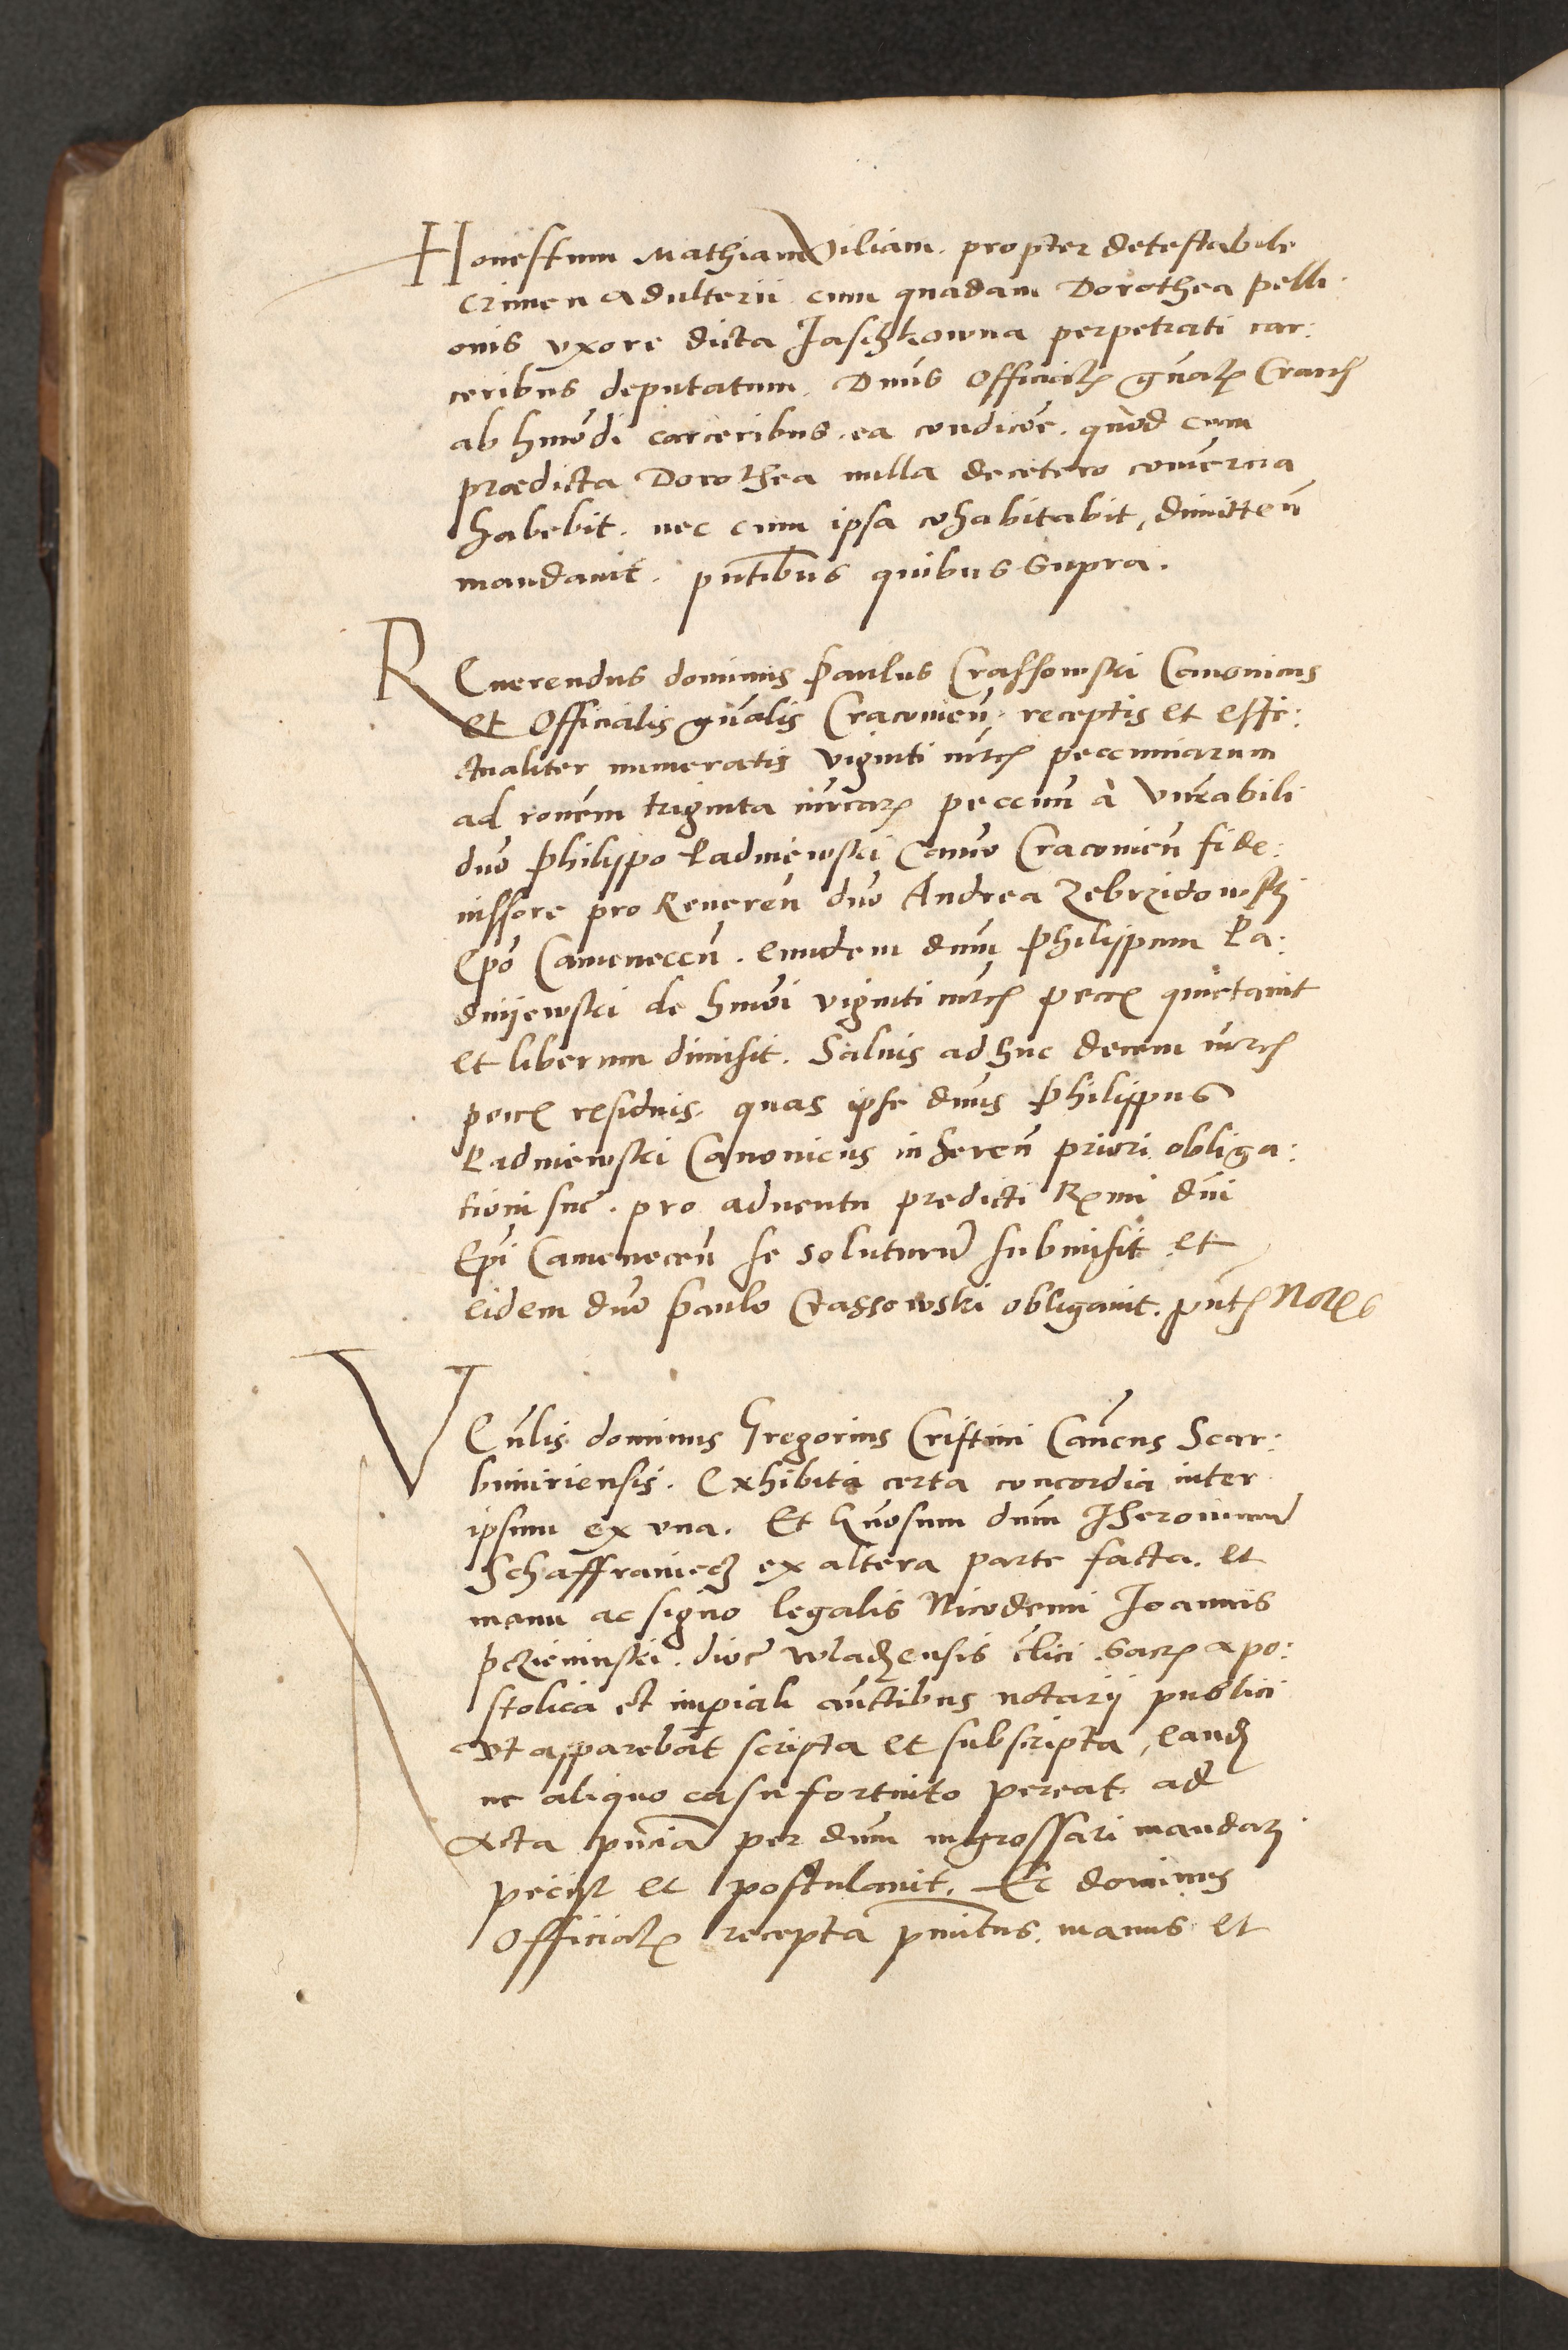 Honestum Mathiam Viliam. propter detestabile
crimen adulterii cum quadam Dorothea pelli.
onis uxore dicta Jaschkowna perpetrati car:
ceribus deputatum. Dnus Officialis gnalis Cracovien
ab hmodi carceribus. ea condicoe. quod cum
prædicta Dorothea nulla decetero comercia
habebit. nec cum ipsa cohabitabit, dimitten
mandavit. pntibus quibus supra.
REverendus dominus Paulus Crassowski Canonicus
et Officialis gnalis Cracovien. receptis et effe:
ctualiter numeratis viginti mrcis peccuniarum
ad ronem triginta mrcarum peccun à Vnerabili
dno Philippo Padniewski Canco Cracovien fide:
iussore pro Reveren dno Andrea Zebrzidowski
Epo Camenecen. eundem dnum Philippum Pa:
dnijewski de hmoi viginti mrcis pecc quietavit
et liberum dimisit. Salvis adhuc decem mrcis
pecc residuis. quas ipse dnus Philippus
Padniewski Canonicus inheren priori obliga:
tioni sue. pro adventu predicti Rmi dni
Epi Camenecen se soluturum submisit et
eidem dno Paulo Crassowski obligavit. pntibus Notariis
VEnlis dominus Gregorius Cristini Cancus Scar:
bimiriensis. Exhibita certa concordia inter
ipsum ex una. Et Gnosum dnum Jheronimum
Schaffraniecz ex altera parte facta. et
manu ac signo legalis Nicodemi Joannis
dioc wladensis clici sacra apo:
stolica et impiali auctibus notarij publici
ut apparebat scripta et subscripta, eand
ne aliquo casu fortuito pereat ad
Acta pncia per dnum ingrossari mandari
peciit et postulavit. Et dominus
Officialis recepta pnitus. manus et